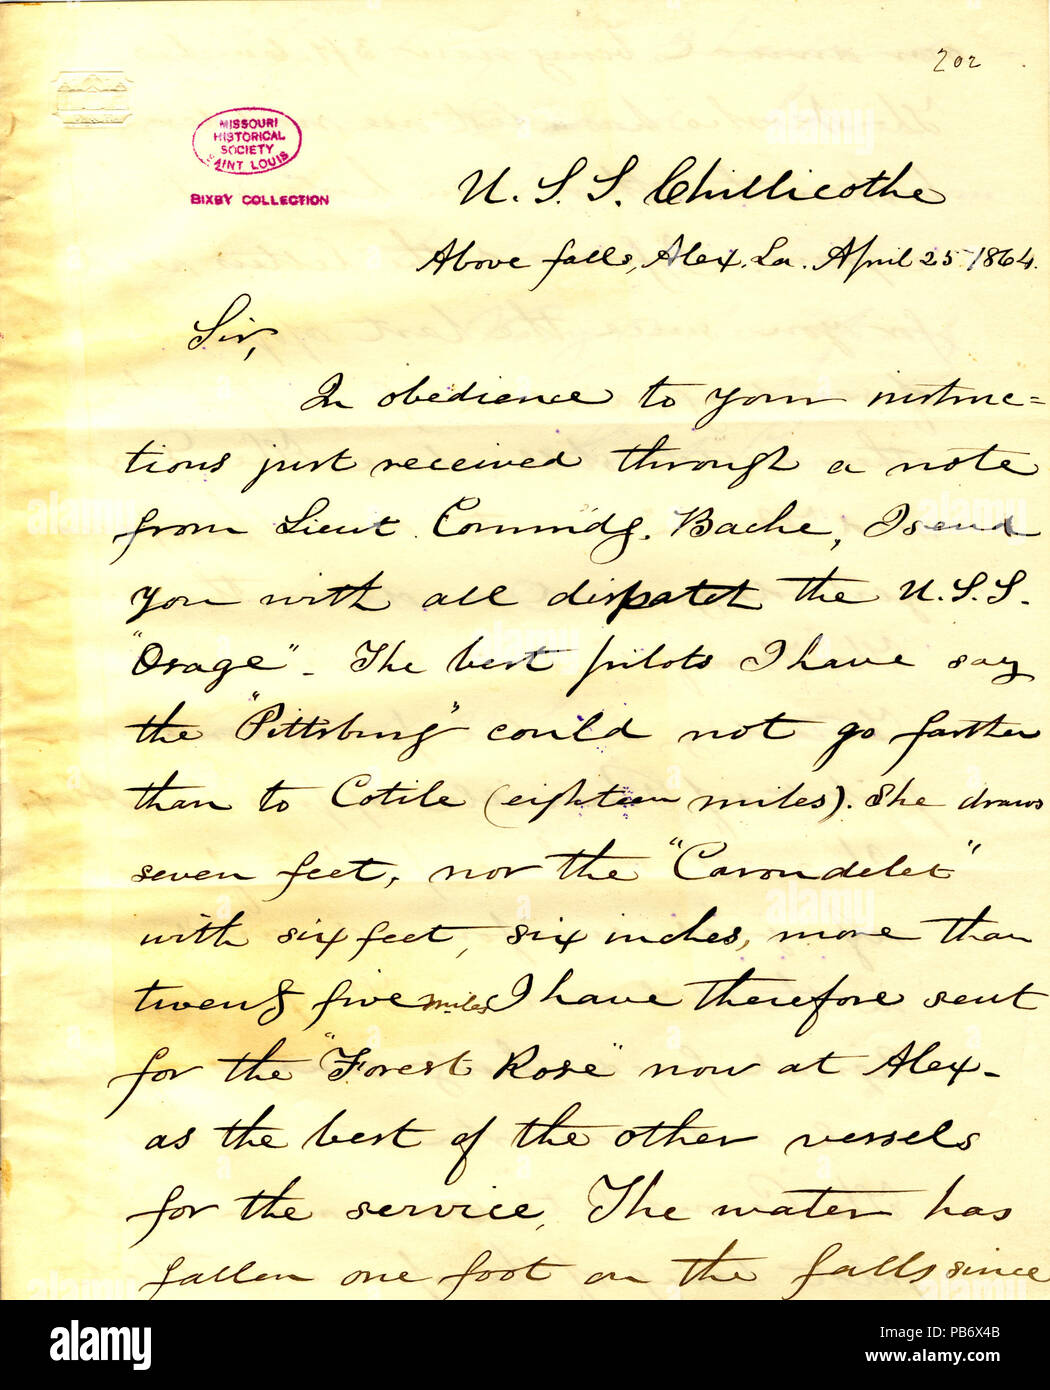 202
MISSOURI
HISTORICAL
SOCIETY
SAINT LOUIS
BIXBY COLLECTION
U. S. S. Chillicothe
Above falls, Alex. La. April 25 1864.
Sir,
In obedience to your instruc=
tions just received through a note
from Lieut. Commdg. Bache, I send
you with all dispatch the U.S.S.
"Osage" - The best pilots I have say
the "Pittsburg" could not go farther
than to Cotile (eighteen miles). She draws
seven feet, nor the "Carondelet"
with six feet, six inches, more than
twenty five miles I have therefore sent
for the "Forest Rose" now at Alex-
as the best of the other vessels
for the service. The water has
fallen one foot on the falls since
alamy
Image ID: PB6X4B
www.alamy.com